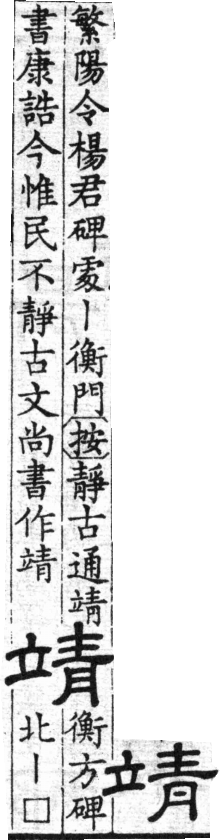 靖
繁陽令楊君碑䖏丨衡門按靜古通靖
書康誥今惟民不靜古文尚書作靖
靖
衡方碑
北丨□